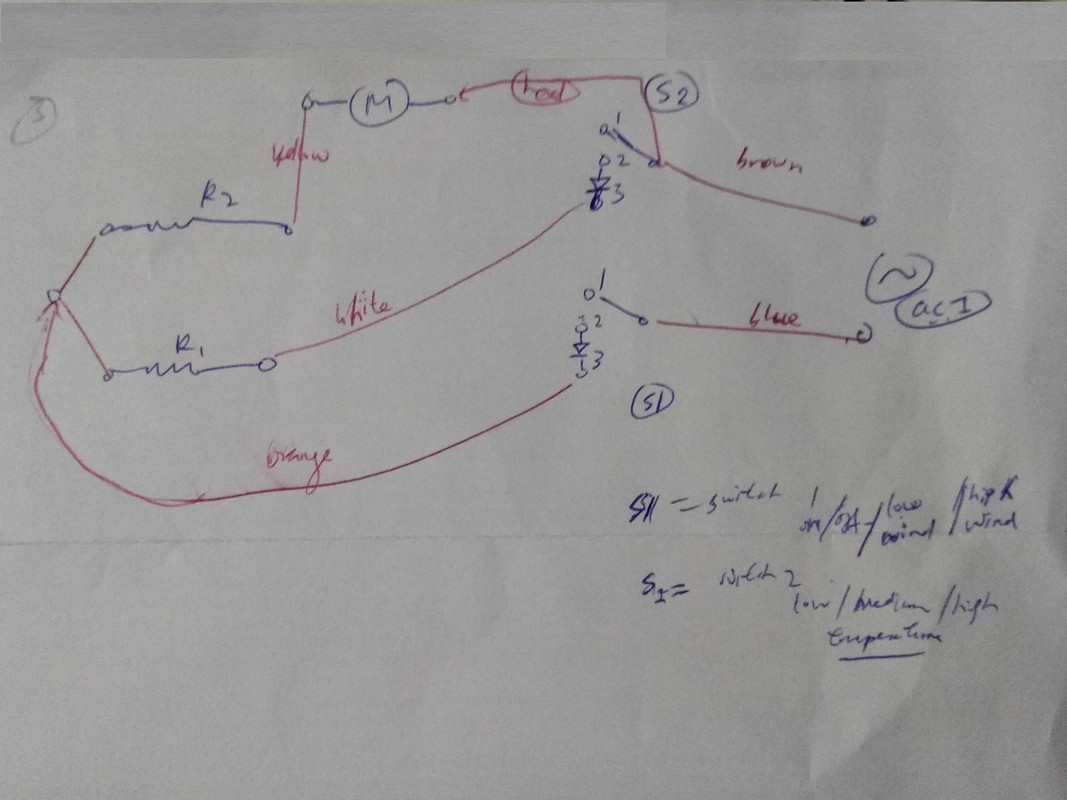 3
M
red
S2
1
2
3
brown
yellow
R2
~
ac1
white
1
2
3
blue
R1
S1
orange
S1 = switch 1
on/off/low wind/high wind
S2 = switch 2
low/medium/high
temperature